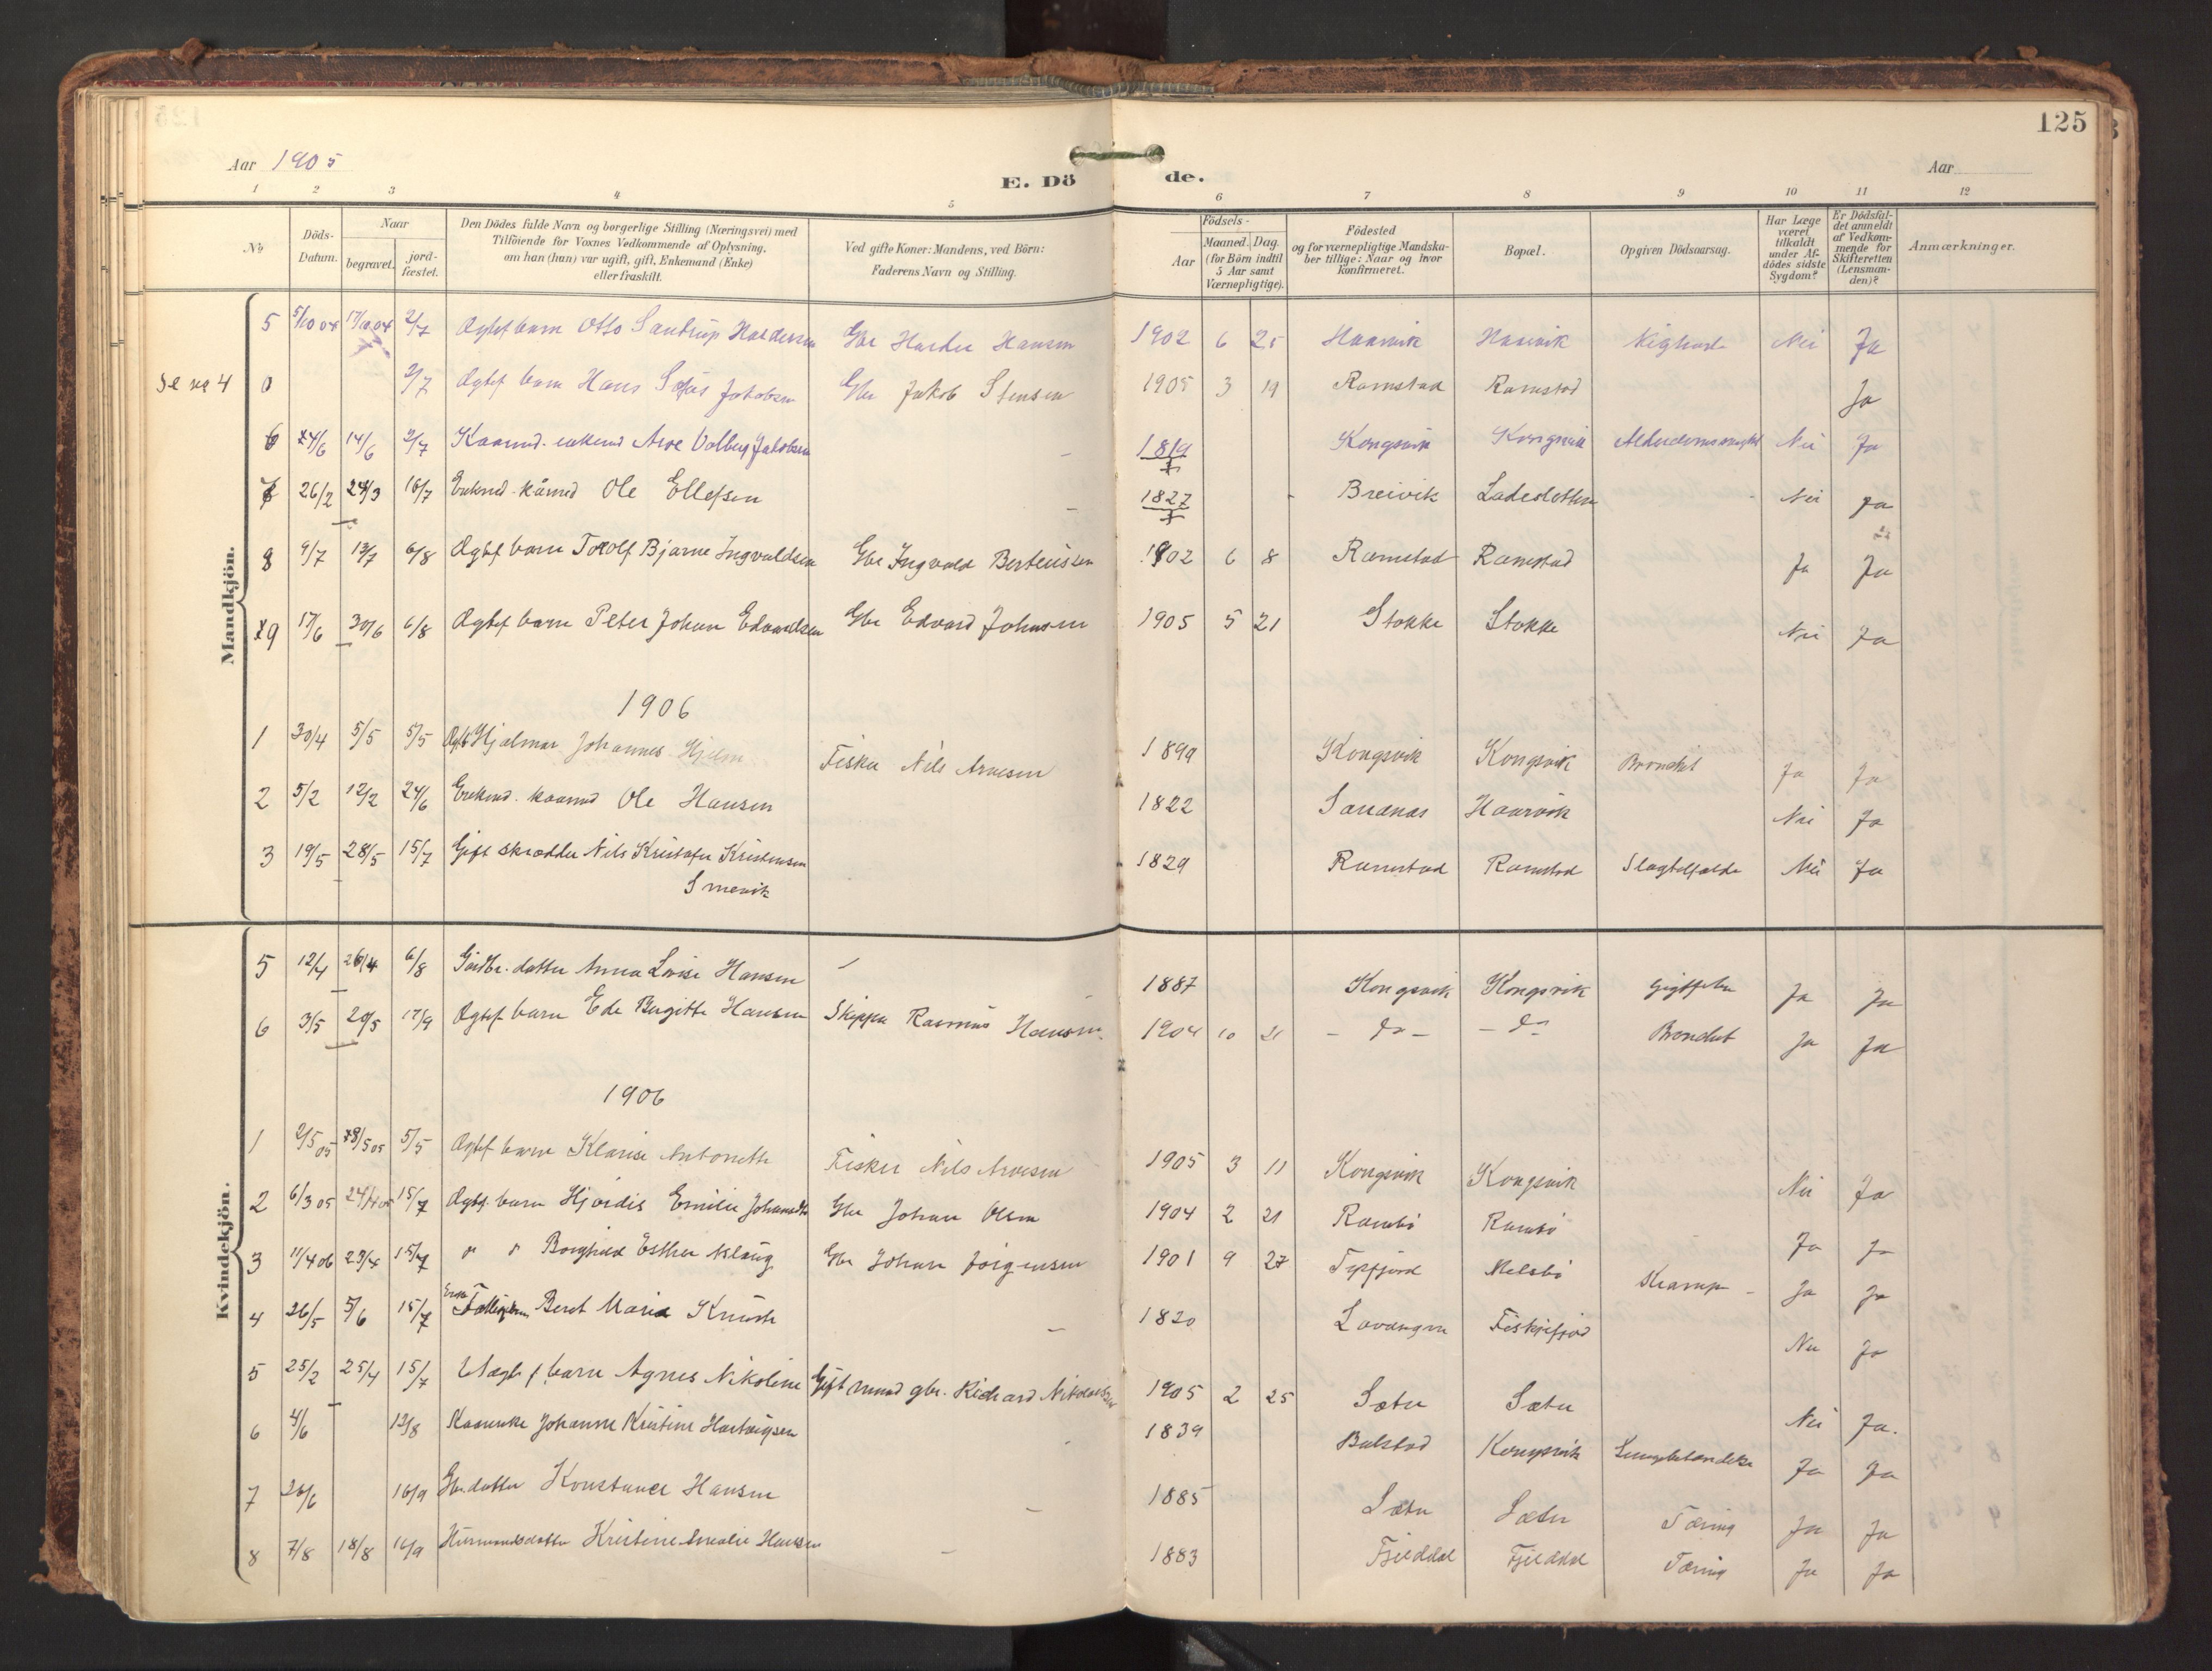 125
Aar 1905
E. Dö
de.
Aar
1 2 3 4 5 6 7 8 9 10 11 12
No
Döds-Datum.
Naar
begravet.
jord-fæstet.
Den Dödes fulde Navn og borgerlige Stilling (Næringsvei) med
Tilföiende for Voxnes Vedkommende af Oplysning,
om han (hun) var ugift, gift, Enkemand (Enke)
eller fraskilt.
Ved gifte Koner: Mandens, ved Börn:
Faderens Navn og Stilling.
Födsels-
Aar
Maaned. Dag.
(for Börn indtil
5 Aar samt
Værnepligtige).
Födested
og for værnepligtige Mandska-
ber tillige: Naar og hvor
konfirmeret.
Bopæl.
Opgiven Dödsaarsag.
Har Læge
været
tilkaldt
under Af-
dödes sidste
Sygdom?
Er Dödsfal-
det anmeldt
af Vedkom-
mende for
Skifteretten
(Lensman-
den)?
Anmærkninger.
Mandkjön.
5 5/10 04 17/10 04 2/7 Ægtef barn Otto Hansen 1902 6 25 Haarvik Haarvik Nei Ja
Se no 4 0 2/7 Ægtef barn Hans Jakobsen Gbr Jakob Stensen 1905 3 19 Ramstad Ramstad Ja
6 14/6 2/7 Kaarmd. Arve Volberg Jakobsen 1819 Kongsvik Kongsvik Nei Ja
7 26/2 24/3 16/7 Enkmd. kårmd Ole Ellefsen 1827 Breivik Nei Ja
8 9/7 13/7 6/8 Ægtef barn Torolf Bjarne Ingvaldsen Gbr Ingvald Berteussen 1902 6 8 Ramstad Ramstad Ja Ja
9 17/6 30/6 6/8 Ægtef barn Peter Johan Edvardsen Gbr Edvard Johnsen 1905 5 21 Stokke Stokke Nei Ja
1906
1 30/4 5/5 5/5 Hjalmar Johannes Fisker Nils Arvesen 1899 Kongsvik Kongsvik Bronchit Ja Ja
2 5/2 12/2 24/6 Enkemd. kaarmd Ole Hansen 1822 Sandnas Haarvik Nei Ja
3 19/5 28/5 15/7 Gift skrædder Nils Kristofer Kristensen 1829 Ramstad Ramstad Slagtilfælde Nei Ja
Smevik
Kvindekjön.
5 12/4 26/4 6/8 Gårdbr. datter Anna Lovise Hansen 1887 Kongsvik Kongsvik Gigtfeber Ja Ja
6 3/5 20/5 17/9 Ægtef barn Birgitte Hansen Skipper Rasmus Hansen 1904 10 21 - Do - - Do Bronchit Ja Ja
1906
1 2/5 05 5/5 Ægtef barn Klarise Antonette Fisker Nils Arvesen 1905 3 11 Kongsvik Kongsvik Nei Ja
2 6/3 05 15/7 Ægtef. barn Hjördis Emilie Gbr Johan Olsen 1904 2 21 Rambö Rambö Ja Ja
3 11/4 06 23/4 15/7 " " Borghild Esther Aslaug Gbr Johan Jörgensen 1901 9 27 Melsbö Krampe Ja Ja
4 26/5 5/6 15/7 Beret Maria 1820 Lavangen Fiskefjord Nei Ja
5 25/2 25/4 15/7 Uægtef barn Agnes Nikoline Gift mand gbr. Richard 1905 2 25 Sæter Sæter Nei Ja.
6 4/6 12/8 Kaarenke Johanne Kristine Hartvigsen 1839 Balstad Kongsvik Lungebetændelse Ja Ja
7 26/6 16/9 Gbr.datter Konstance Hansen 1885 Sæter Sæter Tæring Ja Ja
8 7/8 18/8 16/9 Husmandsdatter Kristine Amalie Hansen 1883 Fjelddal Fjelddal Tæring Ja Ja